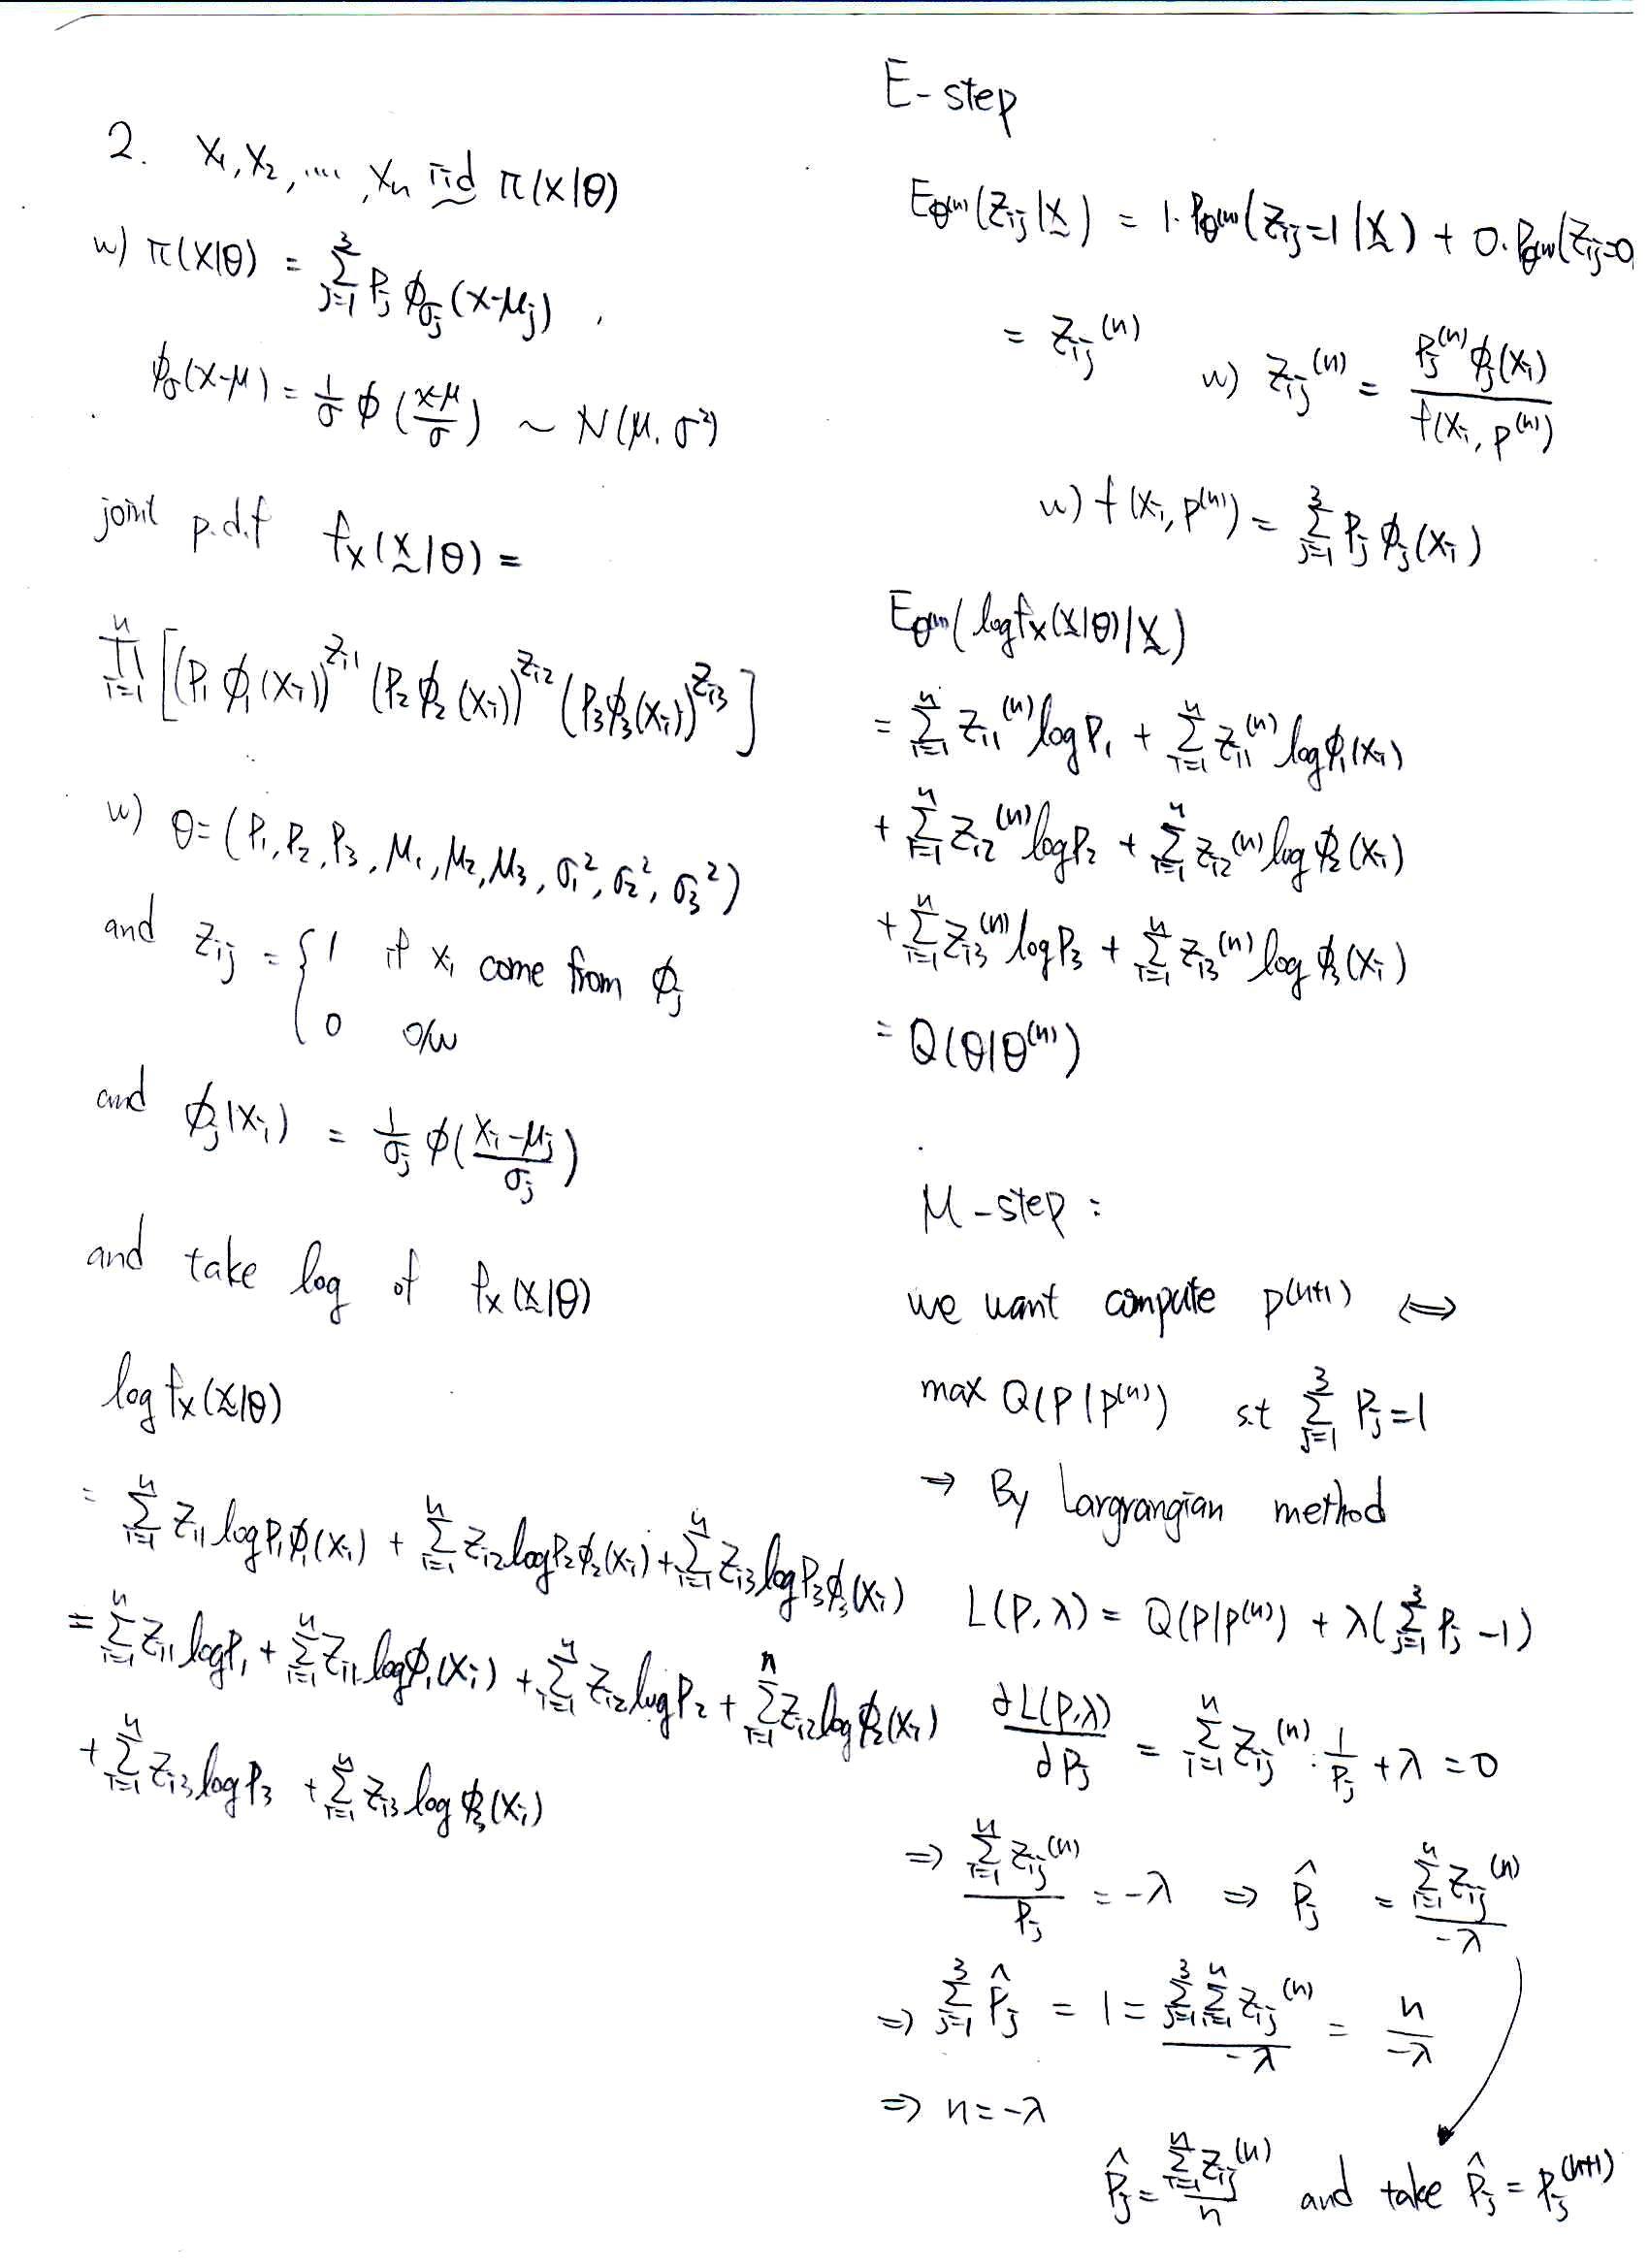 2. X₁, X₂, ...., Xₙ iid π(X|θ)
w) π(X|θ) = Σ_{j=1}^{3} P_j ϕ_{σ_j}(X-μ_j) ,
ϕ_σ(X-μ) = 1/σ ϕ((X-μ)/σ) ~ N(μ, σ²)
joint p.d.f f_X(X|θ) =
Π_{i=1}^{n} [(P₁ϕ₁(X_i))^{Z_{i1}} (P₂ϕ₂(X_i))^{Z_{i2}} (P₃ϕ₃(X_i))^{Z_{i3}}]
w) θ = (P₁, P₂, P₃, μ₁, μ₂, μ₃, σ₁², σ₂², σ₃²)
and Z_{ij} = { 1 if x_i come from ϕ_j
0 o/w
and ϕ_j(X_i) = 1/σ_j ϕ((X_i-μ_j)/σ_j)
and take log of f_X(X|θ)
log f_X(X|θ)
= Σ_{i=1}^{n} Z_{i1} log P₁ϕ₁(X_i) + Σ_{i=1}^{n} Z_{i2} log P₂ϕ₂(X_i) + Σ_{i=1}^{n} Z_{i3} log P₃ϕ₃(X_i)
= Σ_{i=1}^{n} Z_{i1} log P₁ + Σ_{i=1}^{n} Z_{i1} log ϕ₁(X_i) + Σ_{i=1}^{n} Z_{i2} log P₂ + Σ_{i=1}^{n} Z_{i2} log ϕ₂(X_i)
+ Σ_{i=1}^{n} Z_{i3} log P₃ + Σ_{i=1}^{n} Z_{i3} log ϕ₃(X_i)
E-step
E_{θ^{(n)}}(Z_{ij}|X) = 1·P_{θ^{(n)}}(Z_{ij}=1|X) + 0·P_{θ^{(n)}}(Z_{ij}=0
= Z_{ij}^{(n)} w) Z_{ij}^{(n)} = P_j^{(n)} ϕ_j(X_i) / f(X_i, P^{(n)})
w) f(X_i, P^{(n)}) = Σ_{j=1}^{3} P_j ϕ_j(X_i)
E_{θ^{(n)}}(log f_X(X|θ)|X)
= Σ_{i=1}^{n} Z_{i1}^{(n)} log P₁ + Σ_{i=1}^{n} Z_{i1}^{(n)} log ϕ₁(X_i)
+ Σ_{i=1}^{n} Z_{i2}^{(n)} log P₂ + Σ_{i=1}^{n} Z_{i2}^{(n)} log ϕ₂(X_i)
+ Σ_{i=1}^{n} Z_{i3}^{(n)} log P₃ + Σ_{i=1}^{n} Z_{i3}^{(n)} log ϕ₃(X_i)
= Q(θ|θ^{(n)})
M-step :
we want compute P^{(n+1)} ⟺
max Q(P|P^{(n)}) s.t Σ_{j=1}^{3} P_j = 1
⇒ By Largrangian method
L(P,λ) = Q(P|P^{(n)}) + λ(Σ_{j=1}^{3} P_j - 1)
∂L(P,λ)/∂P_j = Σ_{i=1}^{n} Z_{ij}^{(n)} · 1/P_j + λ = 0
⇒ Σ_{i=1}^{n} Z_{ij}^{(n)} / P_j = -λ ⇒ P̂_j = Σ_{i=1}^{n} Z_{ij}^{(n)} / -λ
⇒ Σ_{j=1}^{3} P̂_j = 1 = Σ_{j=1}^{3} Σ_{i=1}^{n} Z_{ij}^{(n)} / -λ = n / -λ
⇒ n = -λ
P̂_j = Σ_{i=1}^{n} Z_{ij}^{(n)} / n and take P̂_j = P_j^{(n+1)}